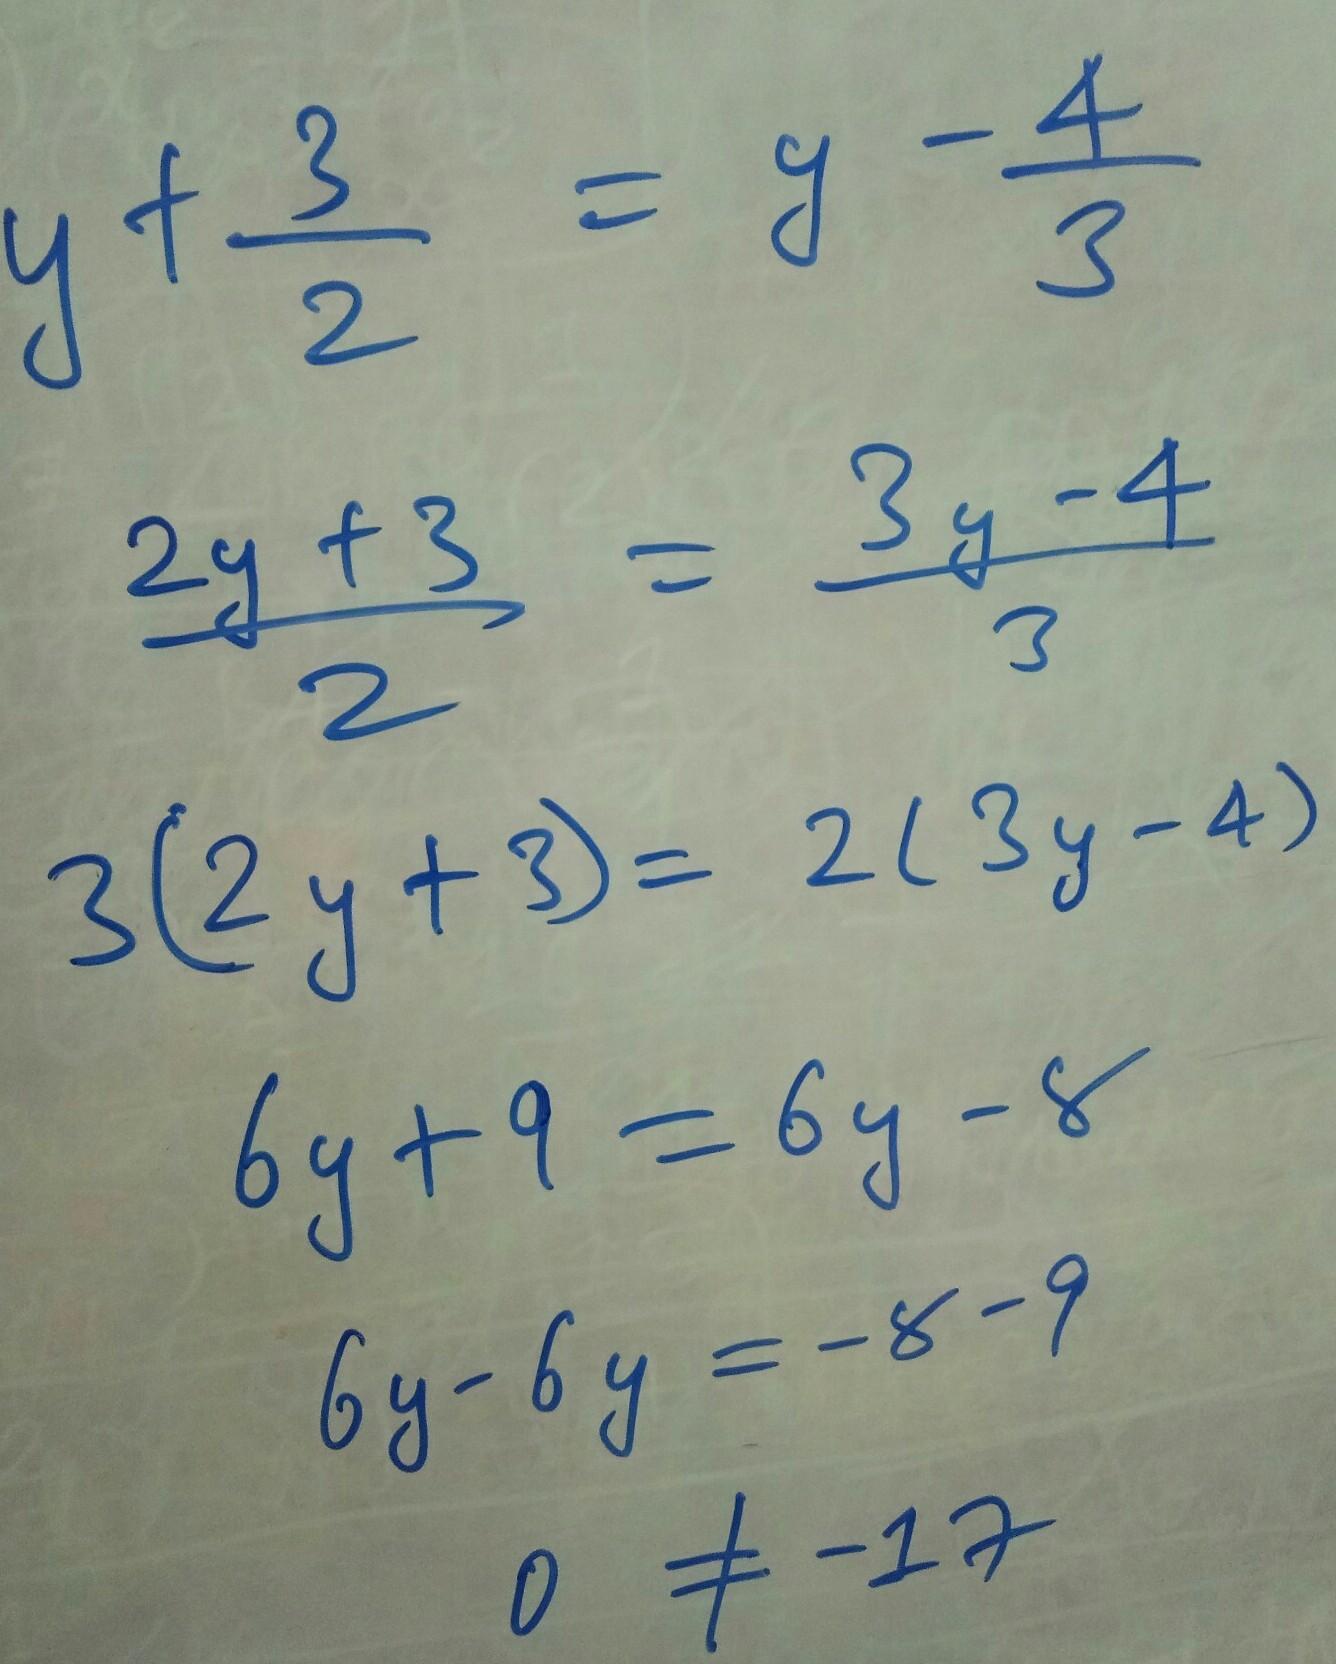 y + 3/2 = y - 4/3
2y + 3/2 = 3y - 4/3
3(2y + 3) = 2(3y - 4)
6y + 9 = 6y - 8
6y - 6y = -8 - 9
0 ≠ -17